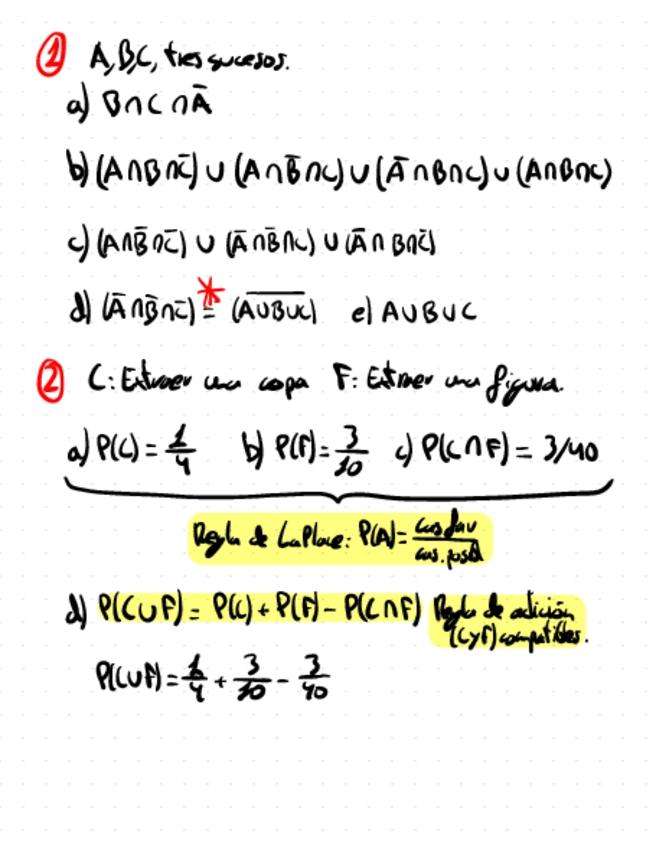 1 A, B, C, tres sucesos.
a) B∩C∩Ā
b) (A∩B∩C̄) ∪ (A∩B̄∩C) ∪ (Ā∩B∩C) ∪ (A∩B∩C)
c) (A∩B̄∩C̄) ∪ (Ā∩B̄∩C) ∪ (Ā∩B∩C̄)
d) (Ā∩B̄∩C̄) =* (A̅∪̅B̅∪̅C̅) e) A∪B∪C
2 C: Extraer una copa F: Extraer una figura.
a) P(C) = 1/4 b) P(F) = 3/10 c) P(C∩F) = 3/40
Regla de LaPlace: P(A) = cas fav / cas. posib
d) P(C∪F) = P(C) + P(F) - P(C∩F) Regla de adición
(C y F) compatibles.
P(C∪F) = 1/4 + 3/10 - 3/40